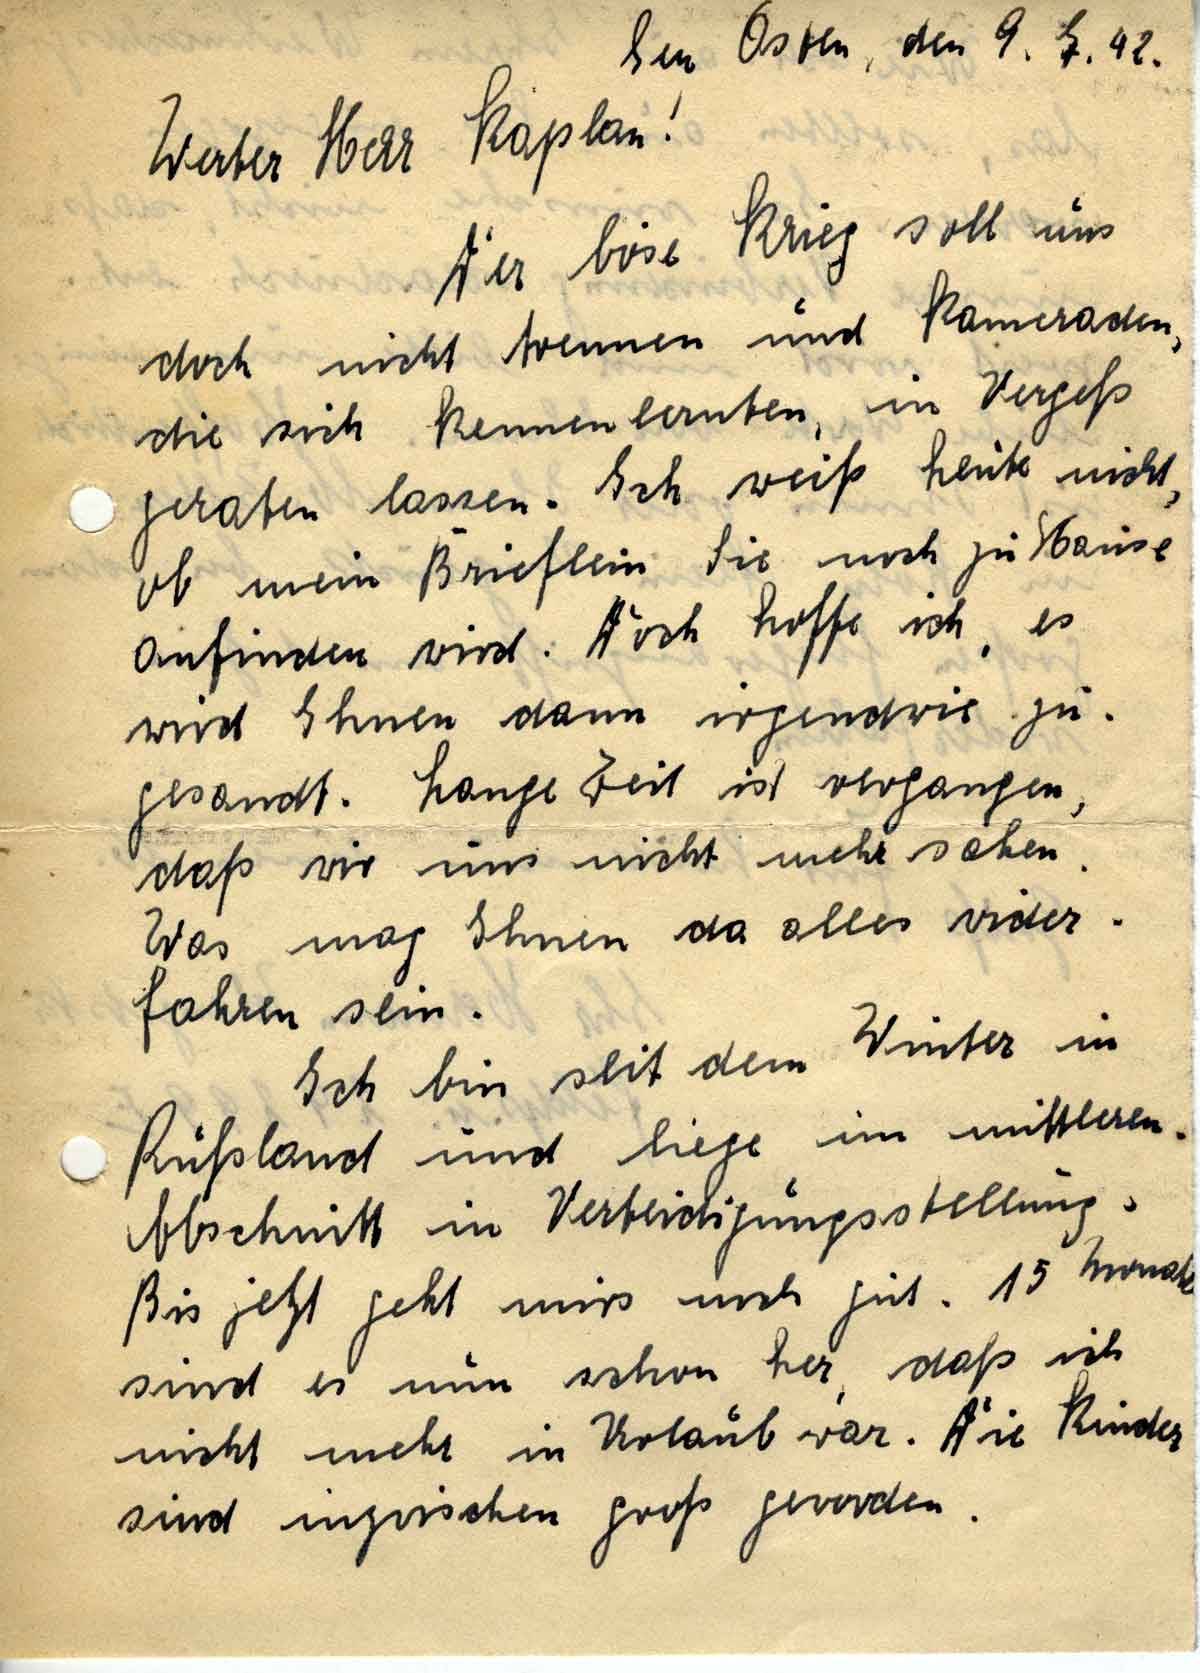 Im Osten, den 9. 7. 42.
Werter Herr Kaplan!
Der böse Krieg soll uns
doch nicht trennen und Kameraden,
die sich kennenlernten, in Vergeß
geraten lassen. Ich weiß heute nicht,
ob mein Brieflein Sie noch zu Hause
anfinden wird. Doch hoffe ich, es
wird Ihnen dann irgendwie zu-
gesandt. Lange Zeit ist vergangen,
daß wir uns nicht mehr sahen.
Was mag Ihnen da alles wider-
fahren sein.
Ich bin seit dem Winter in
Rußland und liege im mittleren-
Abschnitt in Verteidigungsstellung.
Bis jetzt geht mirs noch gut. 15 Monate
sind es nun schon her, daß ich
nicht mehr in Urlaub war. Die Kinder
sind inzwischen groß geworden.